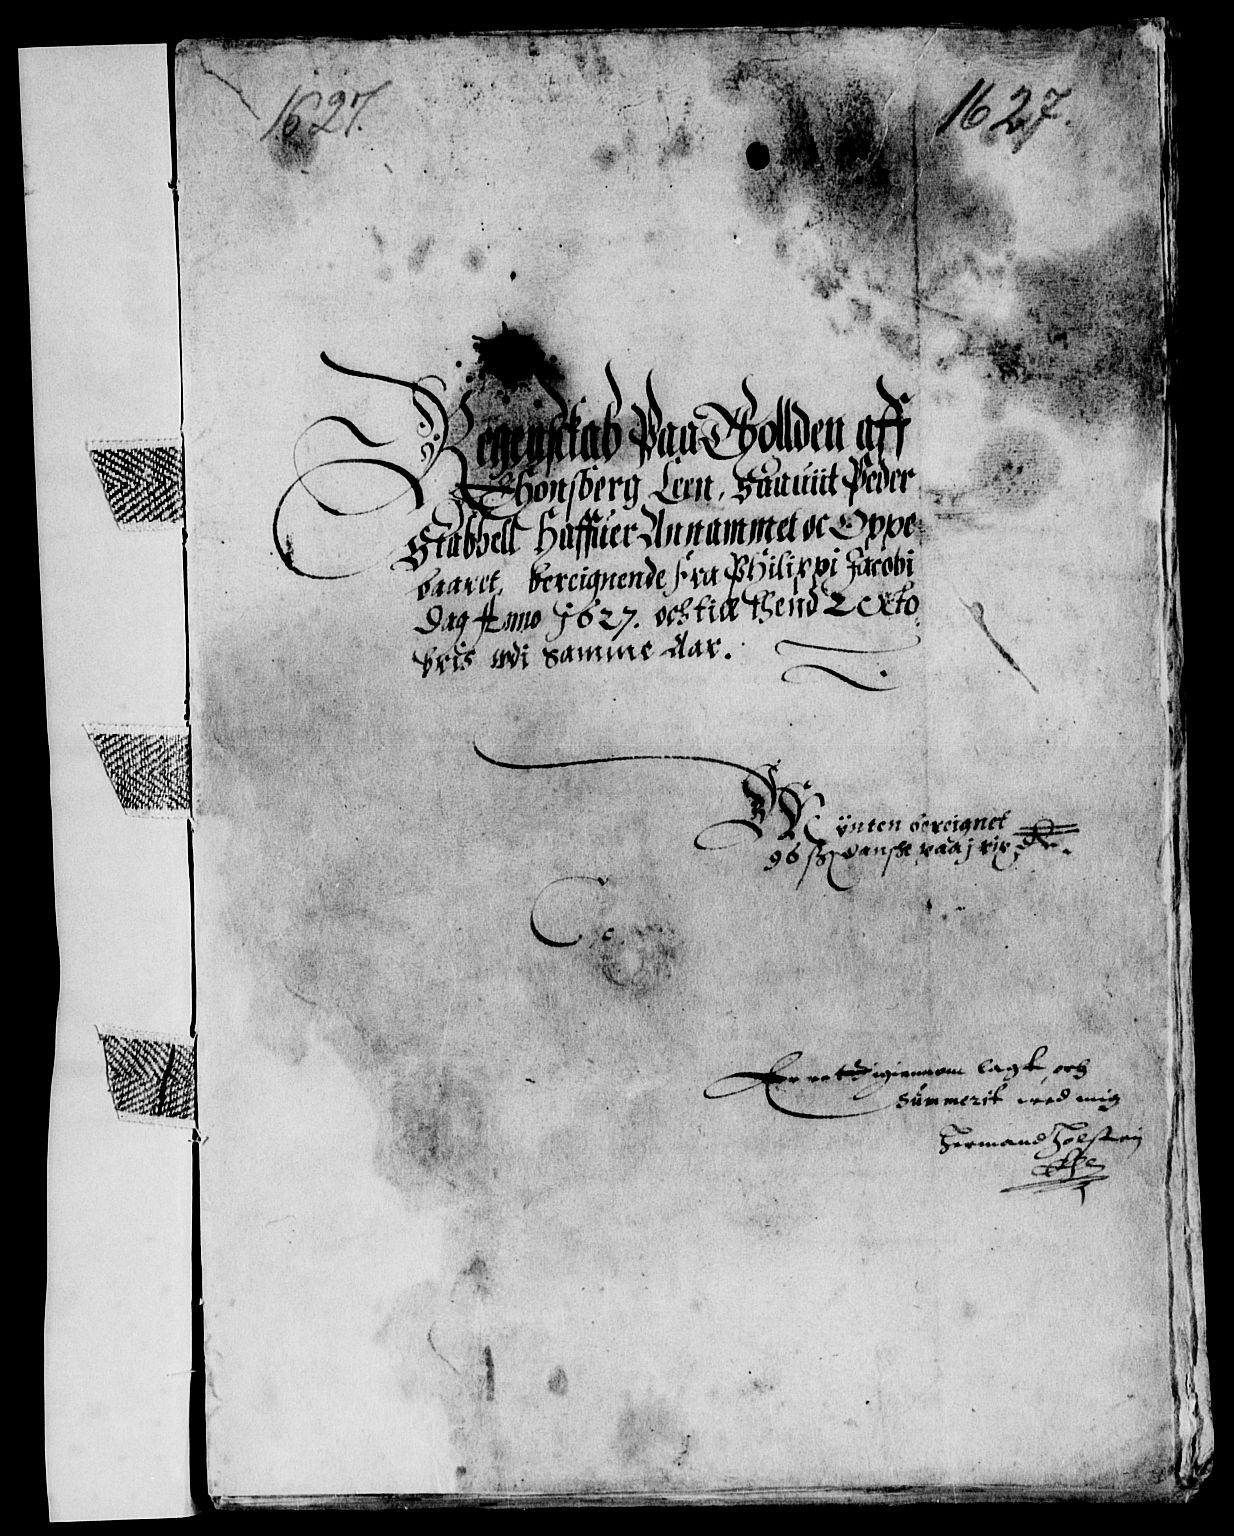 1627.
1627.
Regenskab Paa Tholden aff
Thonsberg Leen, Saauiit Peder
Stabbell Haffuer Annammet oc Oppe
baaret, bereignende fra Philippi Jacobi
Dag Anno 1627. och till thend 2 Octo
bris udi samme Aar.
Mÿnten bereignet
96 ß danske paa j rix dlr.
igiennom lagt och
sümmerit ved mig
Hermand Holstein